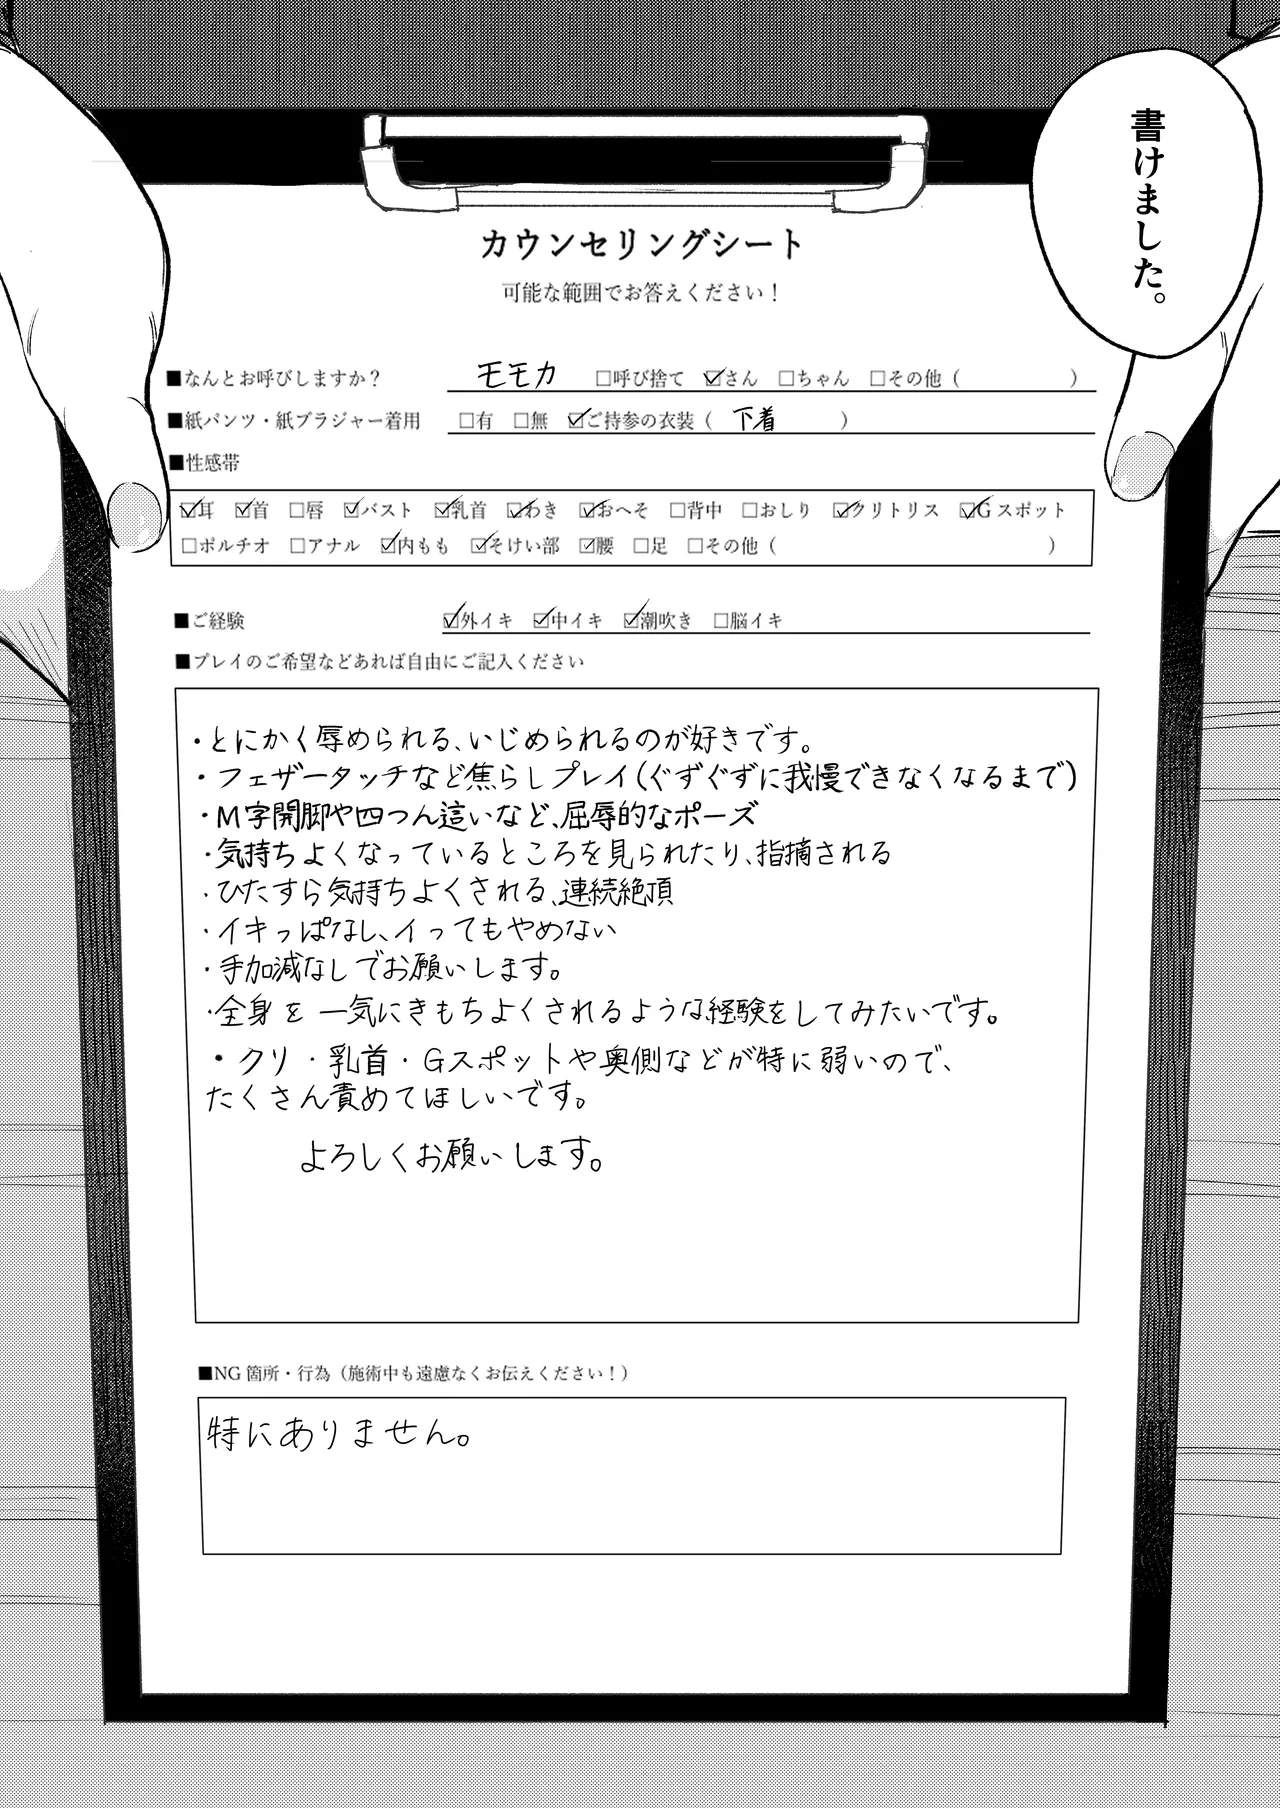 書けました。
カウンセリングシート
可能な範囲でお答えください！
■なんとお呼びしますか？ モモカ □呼び捨て ☑さん □ちゃん □その他（ ）
■紙パンツ・紙ブラジャー着用 □有 □無 ☑ご持参の衣装（ 下着 ）
■性感帯
☑耳 ☑首 □唇 ☑バスト ☑乳首 ☑わき ☑おへそ □背中 □おしり ☑クリトリス ☑Gスポット
□ポルチオ □アナル ☑内もも ☑そけい部 ☑腰 □足 □その他（ ）
■ご経験 ☑外イキ ☑中イキ ☑潮吹き □脳イキ
■プレイのご希望などあれば自由にご記入ください
・とにかく辱められる、いじめられるのが好きです。
・フェザータッチなど焦らしプレイ(ぐずぐずに我慢できなくなるまで)
・M字開脚や四つん這いなど、屈辱的なポーズ
・気持ちよくなっているところを見られたり、指摘される
・ひたすら気持ちよくされる、連続絶頂
・イキっぱなし、イってもやめない
・手加減なしでお願いします。
・全身を一気にきもちよくされるような経験をしてみたいです。
・クリ・乳首・Gスポットや奥側などが特に弱いので、
たくさん責めてほしいです。
よろしくお願いします。
■NG箇所・行為（施術中も遠慮なくお伝えください！）
特にありません。